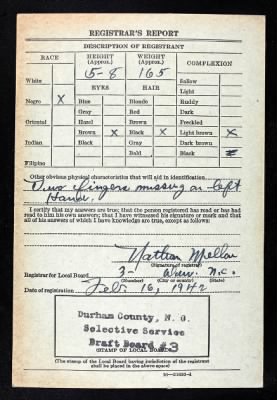 REGISTRAR'S REPORT
DESCRIPTION OF REGISTRANT
RACE HEIGHT (Approx.) WEIGHT (Approx.) COMPLEXION
5-8 165
White Sallow
EYES HAIR Light
Negro X Blue Blonde Ruddy
Gray Red Dark
Oriental Hazel Brown Freckled
Brown X Black X Light brown X
Indian Black Gray Dark brown
Bald Black
Filipino
Other obvious physical characteristics that will aid in identification
Two fingers missing on left
Hand.
I certify that my answers are true; that the person registered has read or has
had read to him his own answers; that I have witnessed his signature or mark and that
all of his answers of which I have knowledge are true, except as follows:
Nathan
(Signature of registrar)
Registrar for Local Board 3- N.C.
(Number) (City or county) (State)
Date of registration Feb. 16, 1942
Durham County, N. C.
Selective Service
Draft Board #3
(STAMP OF LOCAL BOARD)
(The stamp of the Local Board having jurisdiction of the registrant
shall be placed in the above space)